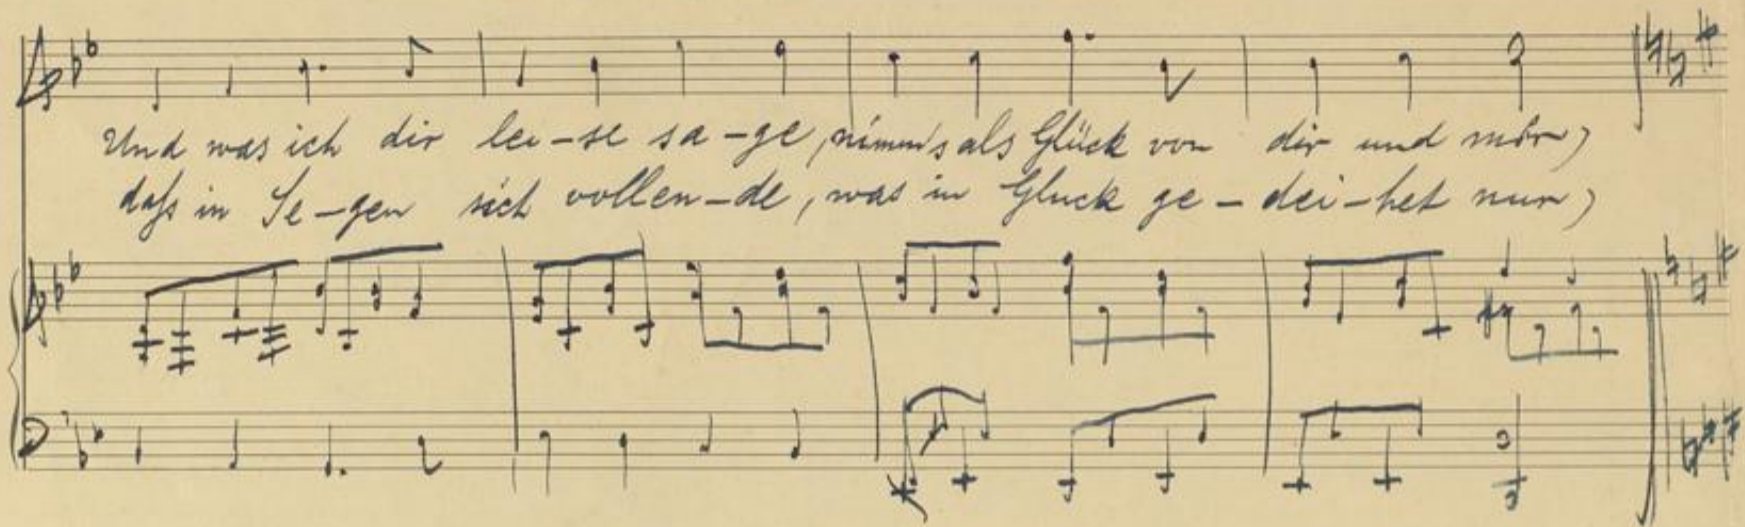 Und was ich dir lei-se sa-ge, nimm's als Glück von dir und mir,
daß in Se-gen sich vollen-de, was in Gluck ge-dei-het nur,